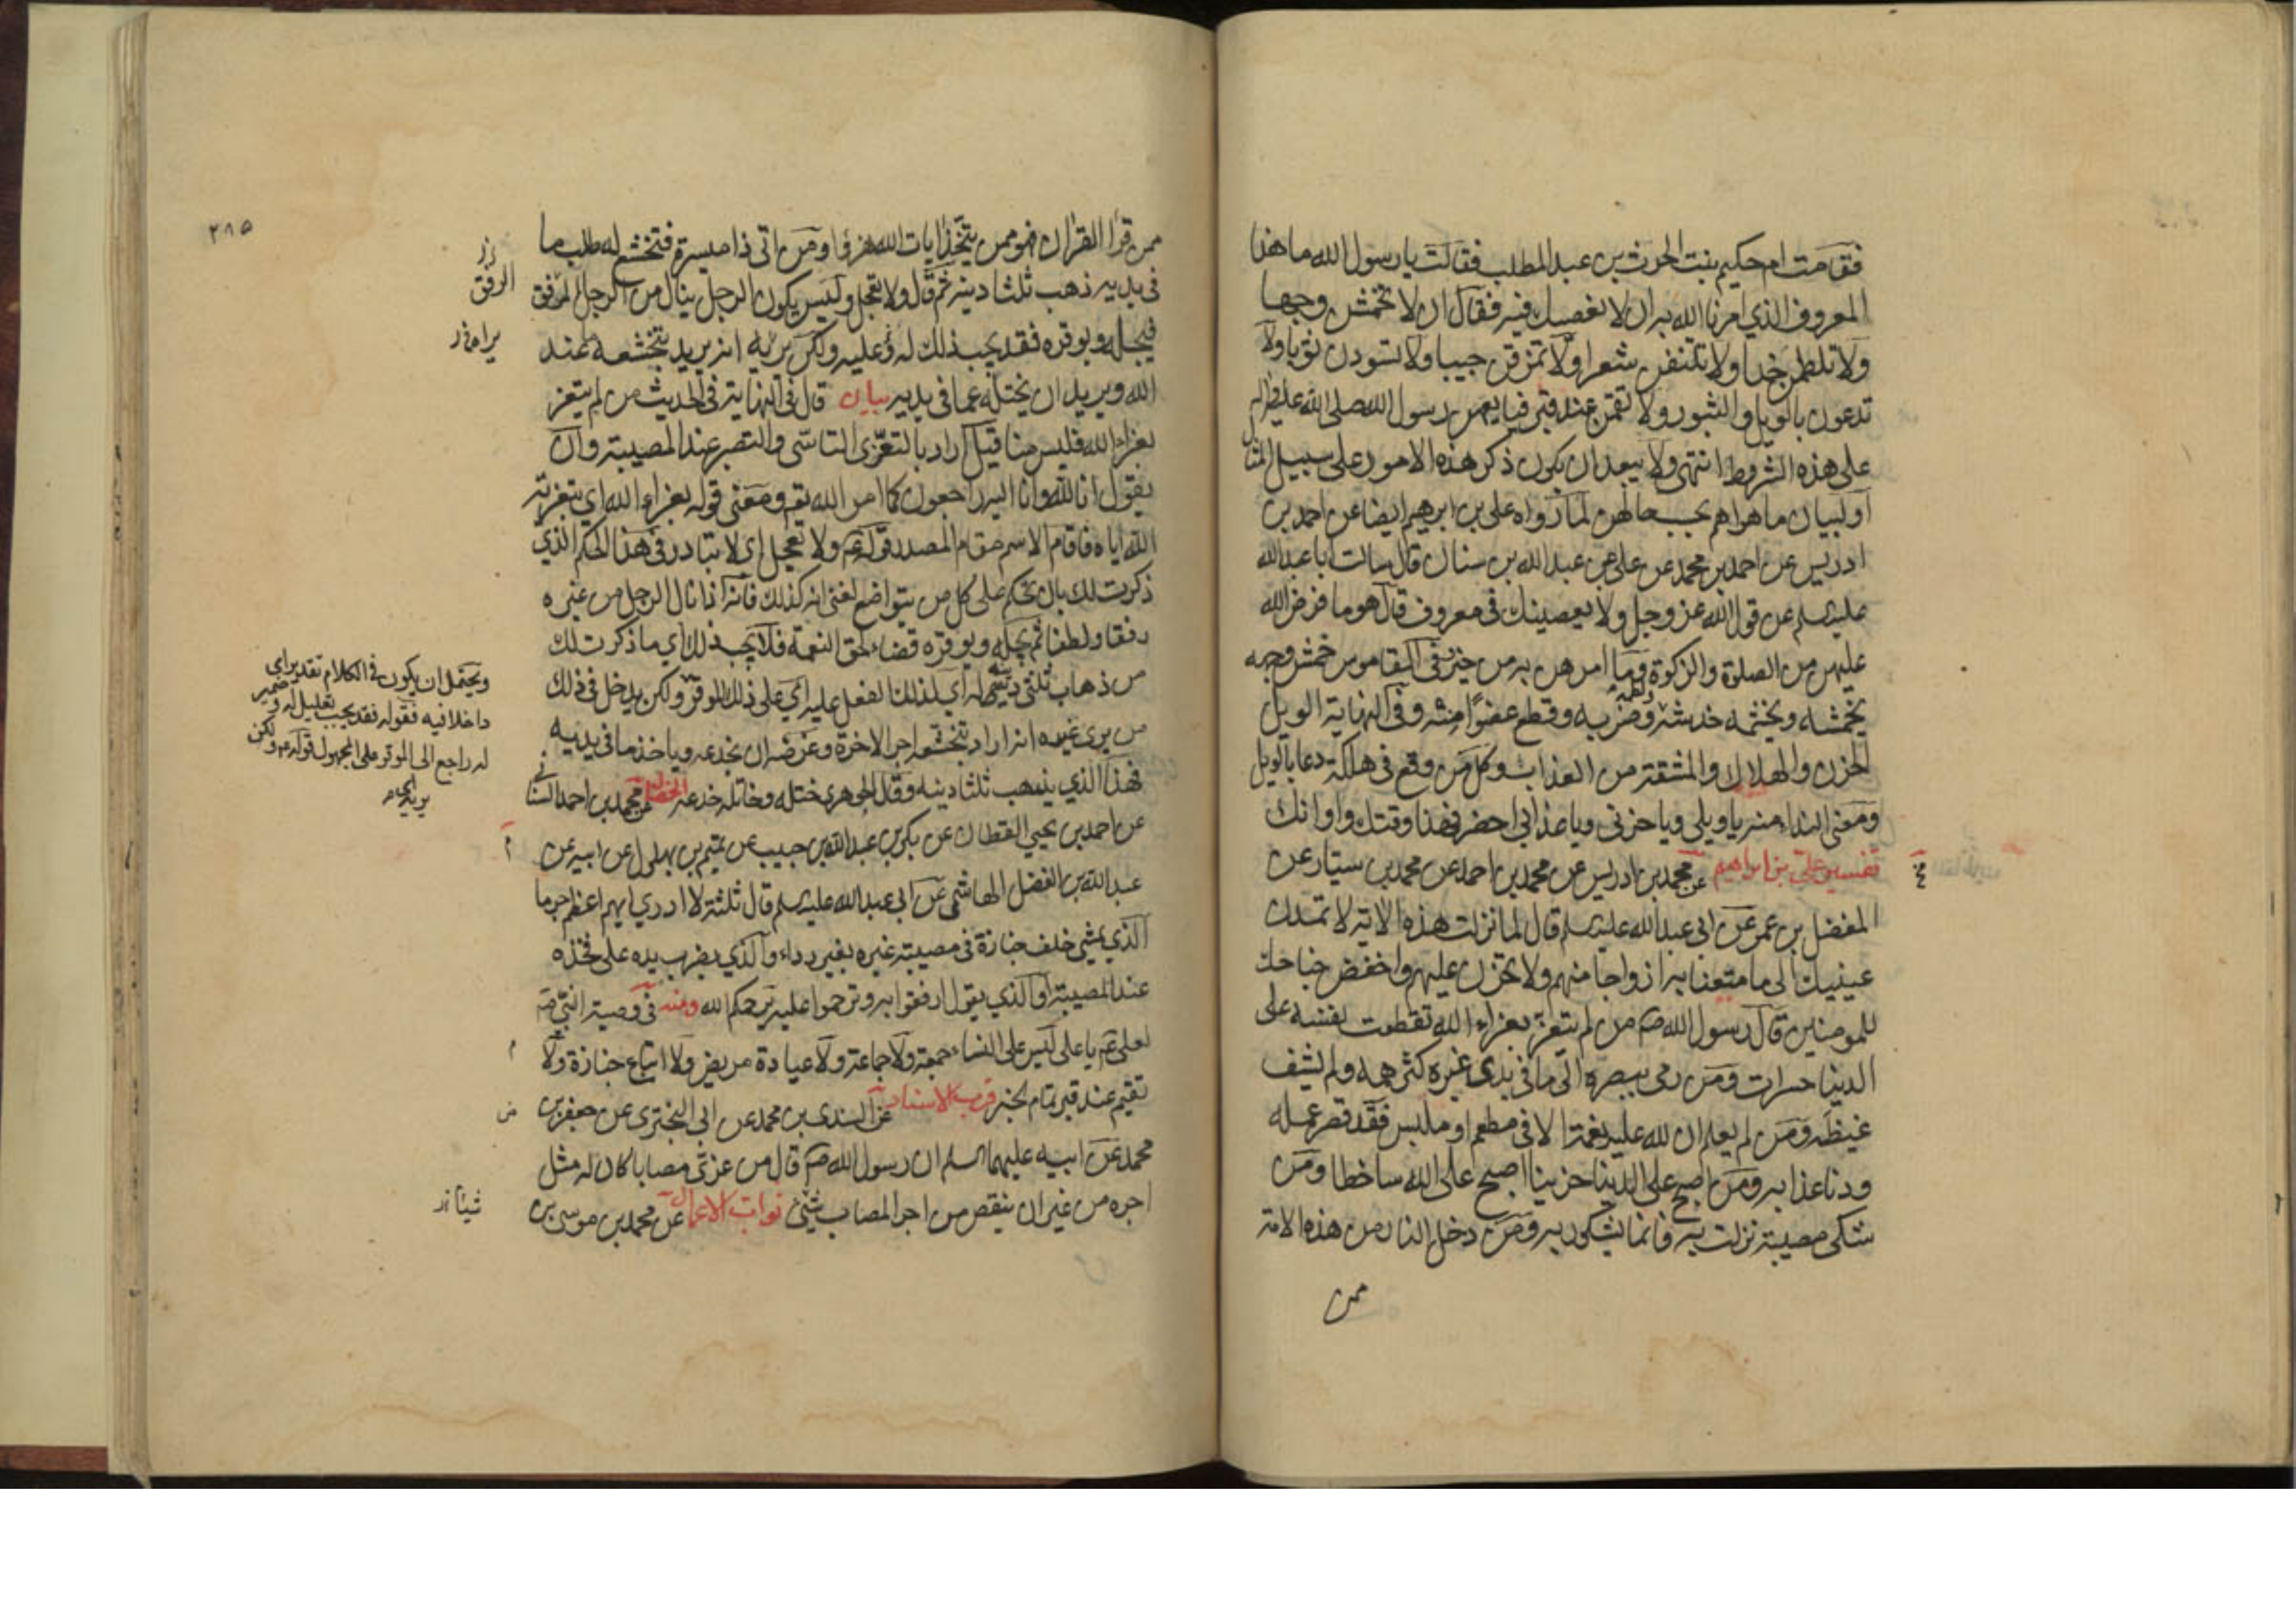 فقامت ام حكيم بنت الحرث بن عبد المطلب فقالت يا رسول الله ما هذا
المعروف الذي امرنا الله به ان لا نعصيك فيه فقال ان لا تخمشن وجها
ولا تلطمن خدا ولا تنتفن شعرا ولا تمزقن جيبا ولا تسودن ثوبا ولا
تدعون بالويل والثبور ولا تقمن عند قبر فبايعهن رسول الله صلى الله عليه واله
على هذه الشروط انتهى ولا يبعد ان يكون ذكر هذه الامور على سبيل المثال
او لبيان ما هو اهم بحسب حالهن لما رواه علي بن ابرهيم ايضا عن احمد بن
ادريس عن احمد بن محمد عن علي عن عبد الله بن سنان قال سالت ابا عبد الله
عليه السلم عن قول الله عز وجل ولا يعصينك في معروف قال هو ما فرض الله
عليهن من الصلوة والزكوة وما امرهن به من خير وفي القاموس خمش وجهه
يخمشه ويخمشه خدشه ولطمه وضربه وقطع عضوا منه وفي النهاية الويل
الحزن والهلاك والمشقة من العذاب وكل من وقع في هلكة دعا بالويل
ومعنى النداء منه يا ويلي ويا حزني ويا عذابي احضر فهذا وقتك واوانك
تفسير علي بن ابراهيم عن محمد بن ادريس عن محمد بن احمد عن محمد بن سيار عن
المفضل بن عمر عن ابي عبد الله عليه السلم قال لما نزلت هذه الاية لا تمدن
عينيك الى ما متعنا به ازواجا منهم ولا تحزن عليهم واخفض جناحك
للمومنين قال رسول الله ص من لم يتعز بعزاء الله تقطعت نفسه على
الدنيا حسرات ومن رمى ببصره الى ما في يدى غيره كثر همه ولم يشف
غيظه ومن لم يعلم ان لله عليه نعمة الا في مطعم او ملبس فقد قصر عمله
ودنا عذابه ومن اصبح على الدنيا حزينا اصبح على الله ساخطا ومن
شكى مصيبة نزلت به فانما يشكو ربه ومن دخل النار من هذه الامة
ممن
٢٨٥
ممن قرا القران فهو ممن يتخذ ايات الله هزوا ومن اتى ذا ميسرة فتخشع له طلب ما
في يديه ذهب ثلثا دينه ثم قال ولا تعجل وليس يكون الرجل ينال من الرجل المرفق
الرفق
فيجله ويوقره فقد يجب ذلك له عليه ولكن يريه انه يريد بتخشعه عند
الله ويريد ان يختله عما في يديه بيان قال في النهاية في الحديث من لم يتعز
بعزاء الله فليس منا قيل اراد بالتعزى التاسي والتصبر عند المصيبة وان
يقول انا لله وانا اليه راجعون كما امر الله تع ومعنى قوله بعزاء الله اي بتعزية
الله اياه فاقام الاسم مقام المصدر قوله ع ولا تعجل اي لا تبادر في هذا الحكم الذي
ذكرت لك بان تحكم على كل من يتواضع لغني انه كذلك فانه اذا نال الرجل من غيره
رفقا ولطفا ثم يجله ويوقره قضاء لحق النعمة فلا يجب ذلك اي ما ذكرت لك
من ذهاب ثلثي دينه له اي لذلك الفعل عليه اي على ذلك الموقر ولكن يدخل في ذلك
من يرى غيره انه اراد بتخشعه اجر الاخرة وغرضه ان يخدعه وياخذ ما في يديه
فهذا الذي يذهب ثلثا دينه وقال الجوهري ختله وخاتله خدعه الخصال عن محمد بن احمد السناني
عن احمد بن يحيى القطان عن بكر بن عبد الله بن حبيب عن تميم بن بهلول عن ابيه عن
عبد الله بن الفضل الهاشمي عن ابي عبد الله عليه السلم قال ثلثة لا ادري ايهم اعظم جرما
الذي يمشي خلف جنازة في مصيبة غيره بغير رداء والذي يضرب يده على فخذه
عند المصيبة او الذي يقول ارفقوا به وترحموا عليه يرحمكم الله ومنه في وصية النبي ص
لعلي ع يا علي ليس على النساء جمعة ولا جماعة ولا عيادة مريض ولا اتباع جنازة ولا
تقيم عند قبر تمام الخبر قرب الاسناد عن السندي بن محمد عن ابي البختري عن جعفر بن
محمد عن ابيه عليهما السلم ان رسول الله ص قال من عزى مصابا كان له مثل
اجره من غير ان ينقص من اجر المصاب شيئ ثواب الاعمال عن محمد بن موسى بن
ويحتمل ان يكون في الكلام تقدير اي
داخلا فيه فقوله فقد يجب تعليل له وضمير
له راجع الى الموقر على المجهول قوله ع ولكن